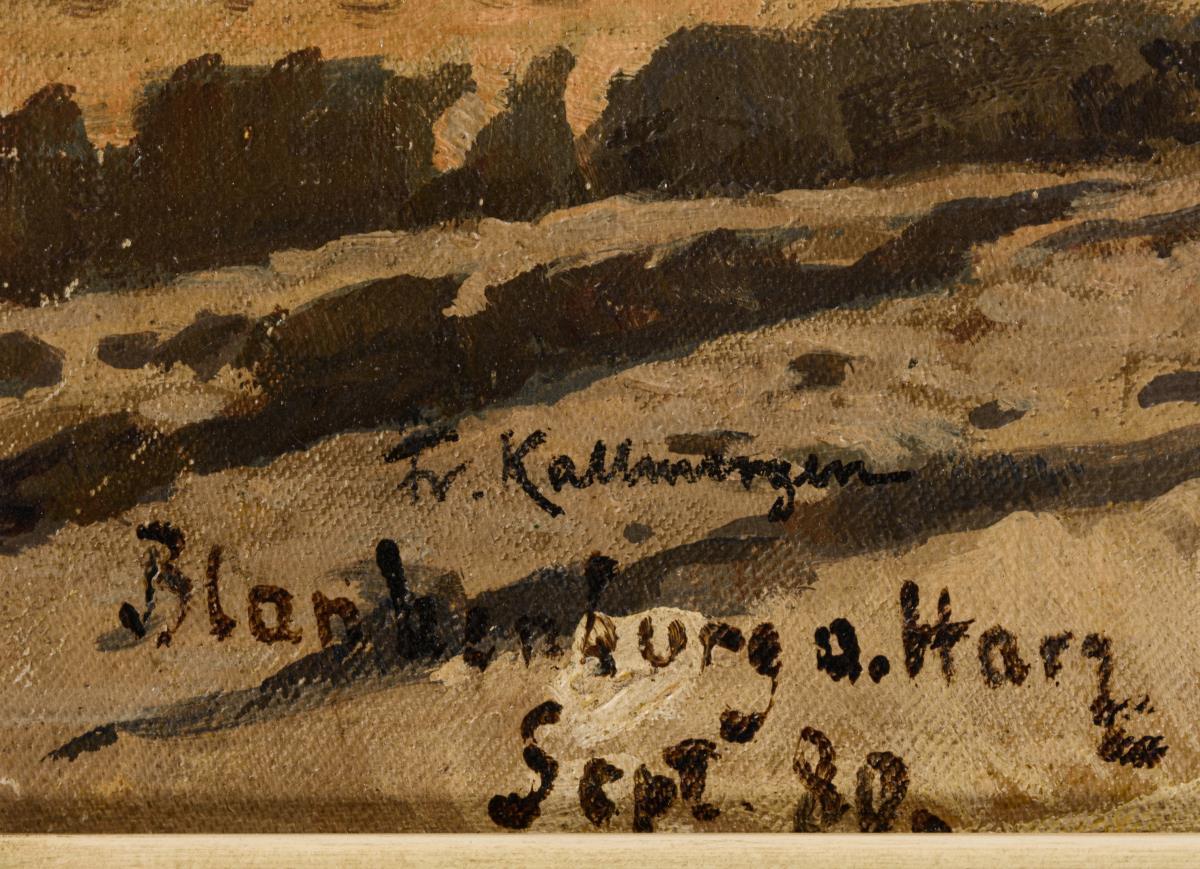 Fr. Kallmorgen
Blankenburg a. Harz
Sept 80.